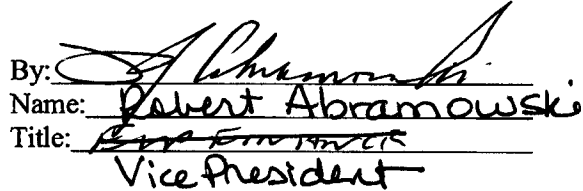 By:
Name: Robert Abramowski
Title:
Vice President